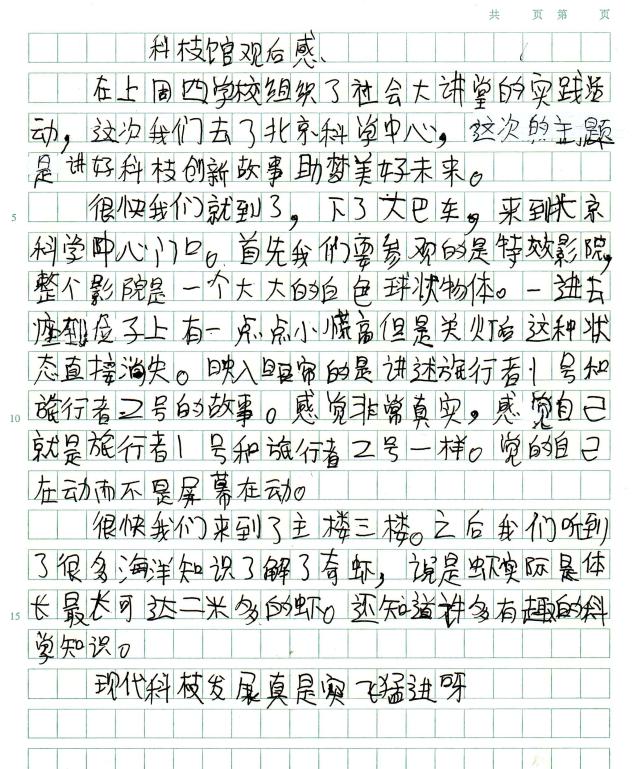 共 页 第 页
科技馆观后感
在上周四学校组织了社会大讲堂的实践活
动，这次我们去了北京科学中心，这次的主题
是讲好科技创新故事助梦美好未来。
很快我们就到了，下了大巴车，来到北京
5
科学中心门口。首先我们要参观的是特效影院，
整个影院是一个大大的白色球状物体。一进去
座到位子上有一点点小慌高但是关灯后这种状
态直接消失。映入眼帘的是讲述旅行者1号和
旅行者二号的故事。感觉非常真实，感觉自己
10
就是旅行者1号和旅行者二号一样。觉的自己
在动而不是屏幕在动。
很快我们来到了主楼三楼。之后我们听到
了很多海洋知识了解了奇虾，说是虾实际是体
长最长可达二米多的虾。还知道许多有趣的科
15
学知识。
现代科技发展真是突飞猛进呀